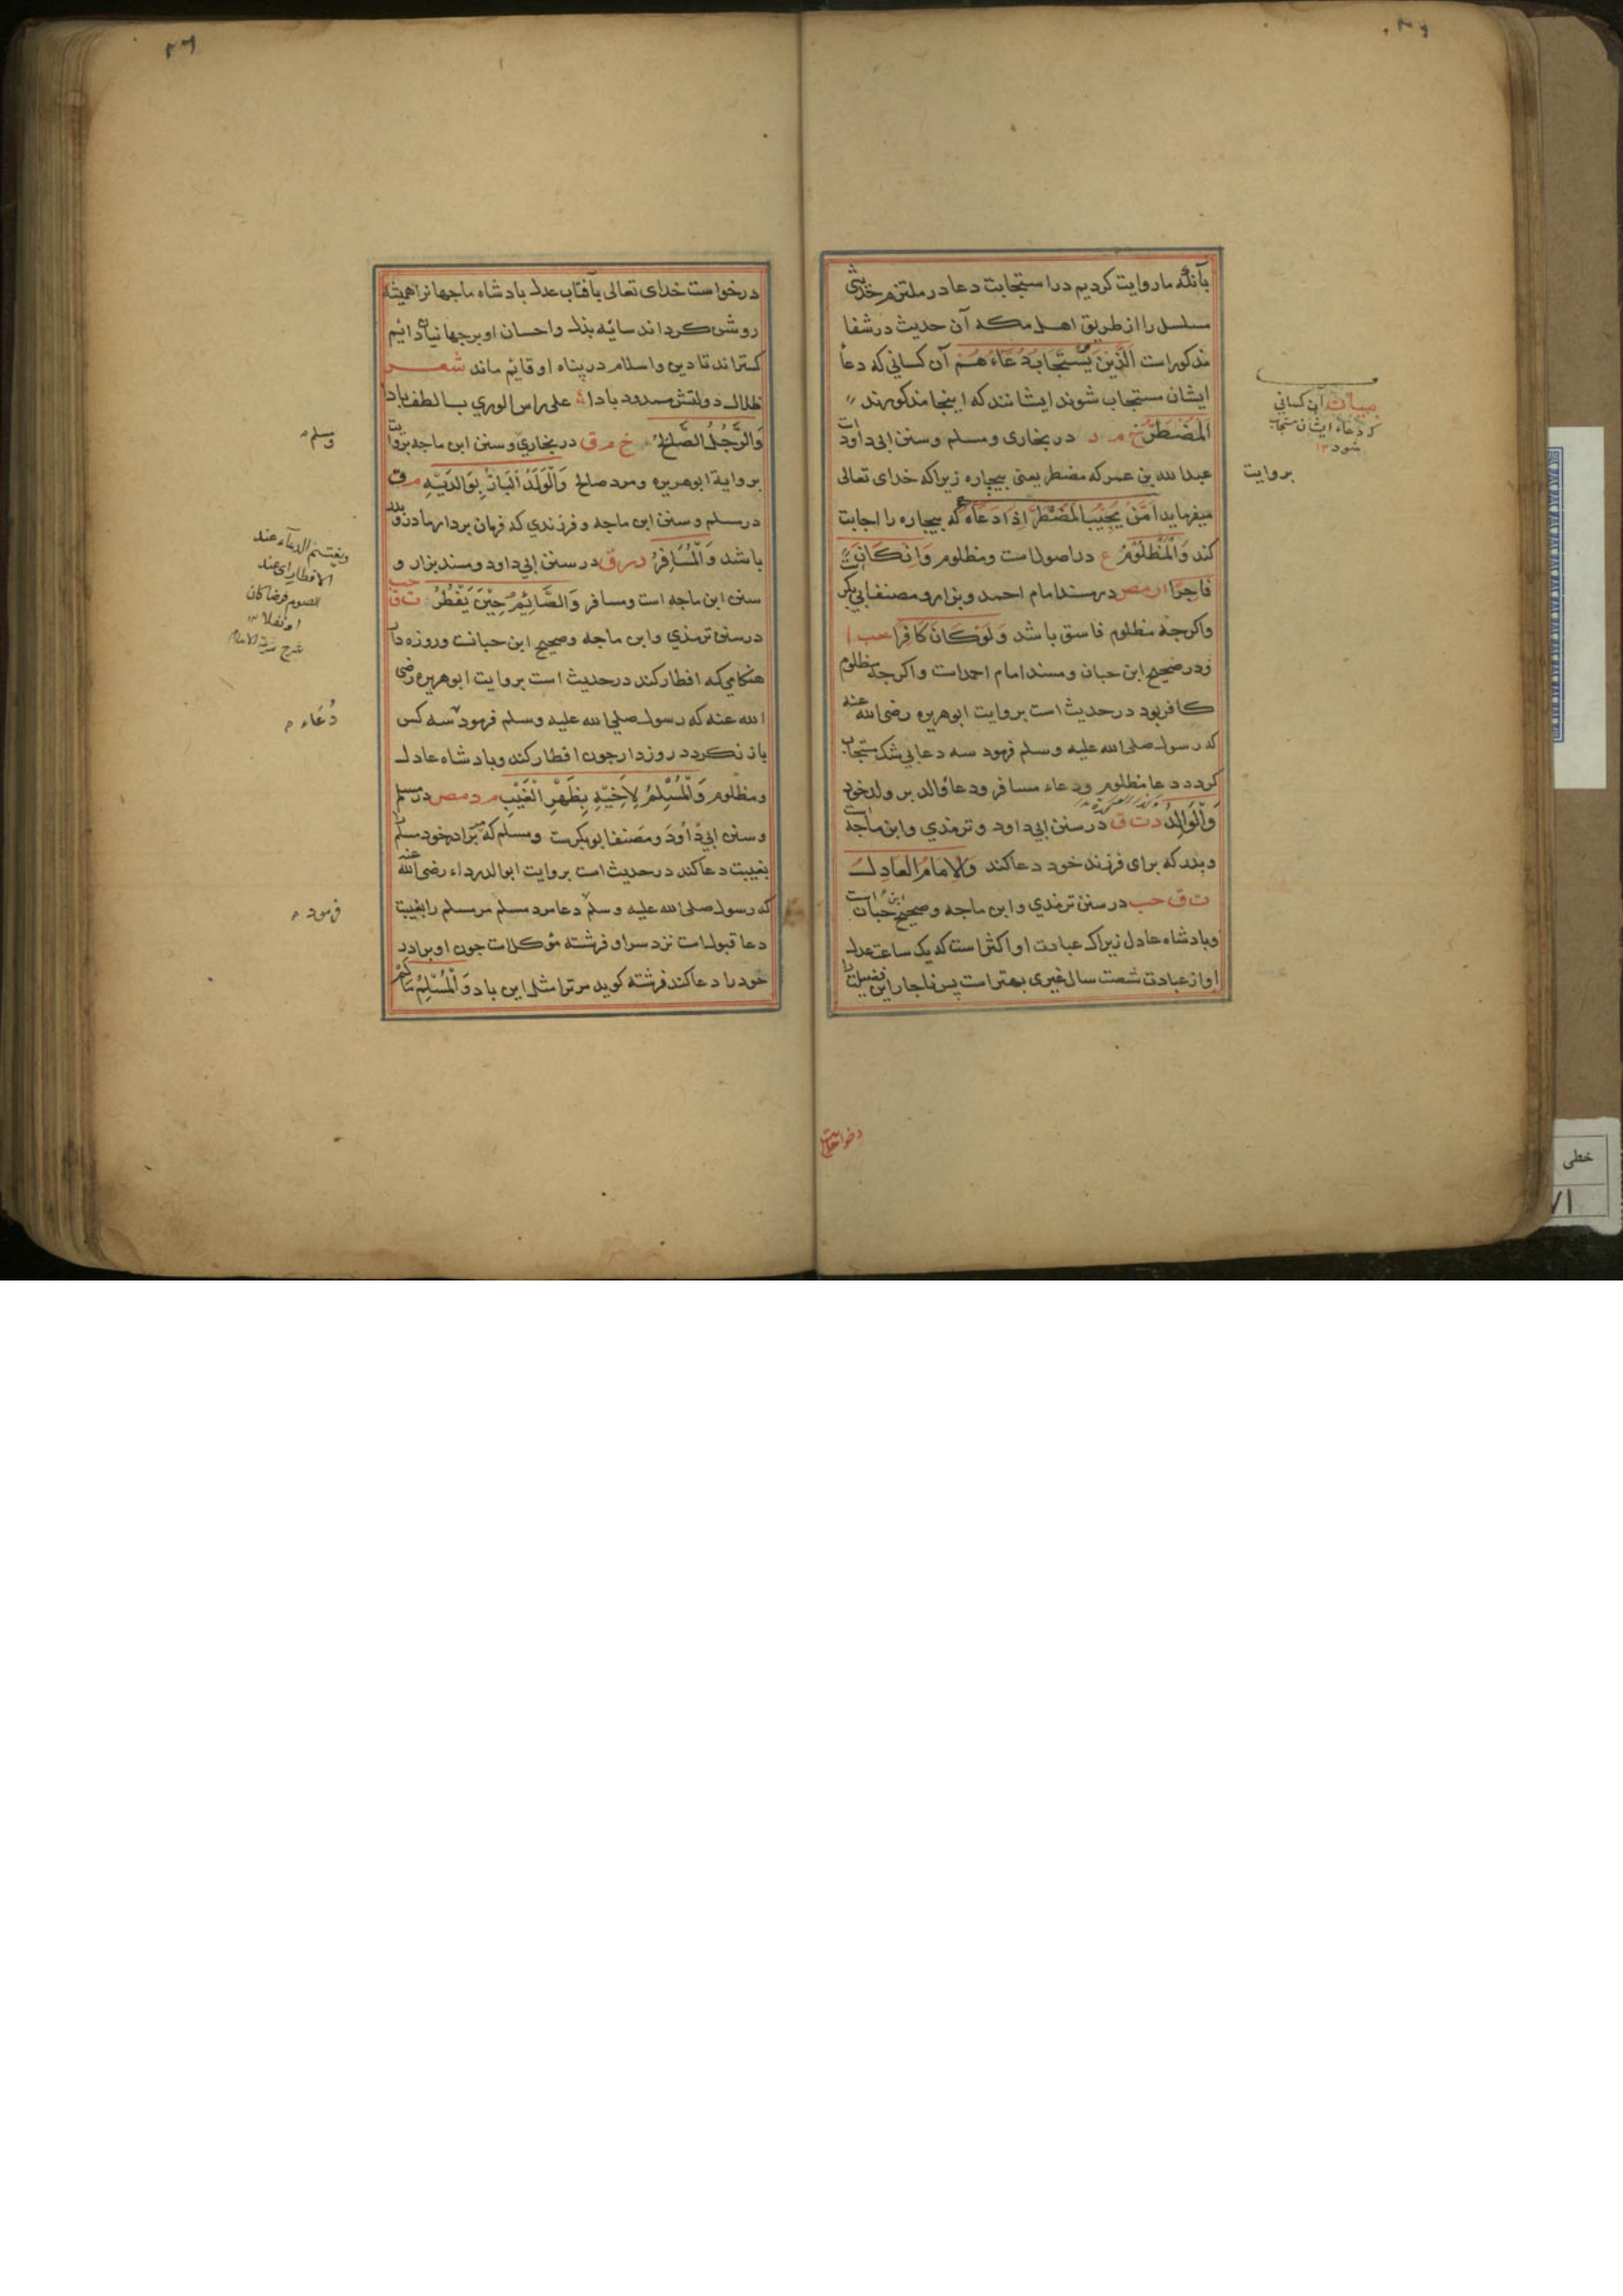 بآنکه ما روایت کردیم در استجابت دعا در ملتزم حدیثی
مسلسل را از طریق اهل مکه آن حدیث در شفا
مذکور است الَّذِینَ یُسْتَجَابُ دُعَاءُهُمْ آن کسانی که دعا
ایشان مستجاب شوند ایشانند که اینجا مذکورند
اَلْمُضْطَرُّ خ م د در بخاری ومسلم وسنن ابی داود است
عبدالله بن عمر که مضطر یعنی بیچاره زیراکه خدای تعالی
میفرماید اَمَّنْ یُجِیْبُ الْمُضْطَرَّ اِذَا دَعَاهُ که بیچاره را اجابت
کند وَالْمَظْلُوْمُ ع در اصولست ومظلوم وَاِنْ کَانَ
فَاجِرًا ا ر مص در مسند امام احمد وبزار ومصنف ابی بکر است
واکرچه مظلوم فاسق باشد وَلَوْ کَانَ کَافِرًا حب ا
ودر صحیح ابن حبان ومسند امام احمد است واکرچه مظلوم
کافر بود در حدیث است بروایت ابوهریره رضی الله عنه
که رسول صلی الله علیه وسلم فرمود سه دعا بی شک مستجاب
کردد دعا مظلوم ودعاء مسافر ودعا والد بر ولد خود
وَالْوَالِدُ د ت ق در سنن ابی داود وترمذی وابن ماجه است
وپدر که برای فرزند خود دعا کند وَالاِمَامُ العَادِلُ
ت ق حب در سنن ترمذی وابن ماجه وصحیح ابن حبان است
وبادشاه عادل زیراکه عبادت او اکثر است که یک ساعت عدل
او از عبادت شصت سال غیری بهتر است پس ناچار این فضیلت را
بیان آن کسانی
که دعاء ایشان مستجاب
شود ۱۲
بروایت
درخواست خدای تعالی بآفتاب عدل بادشاه ما جهانرا همیشه
روشن کرداند سایه بذل واحسان او بر جهانیان دائم
کستراند تا دین واسلام در پناه او قایم ماند شعر
ظلال دولتش ممدود بادا علی راس الوری بالطف بادا
وَالرَّجُلُ الصَّالِحُ خ م ق در بخاری وسنن ابن ماجه بروایت
بروایة ابوهریره ومرد صالح وَالْوَلَدُ الْبَارُّ بِوَالِدَیْهِ م ق
در مسلم وسنن ابن ماجه وفرزندی که فرمان بردار مادر و پدر
باشد وَالْمُسَافِرُ د ر ق در سنن ابی داود ومسند بزار و
سنن ابن ماجه است ومسافر وَالصَّائِمُ حِیْنَ یَفْطُرُ ت ق حب
در سنن ترمذی وابن ماجه وصحیح ابن حبانست وروزه دار
هنکامی که افطار کند در حدیث است بروایت ابوهریره رضی
الله عنه که رسول صلی الله علیه وسلم فرمود سه کس
باز نکردد روزه دار چون افطار کند وبادشاه عادل
ومظلوم وَالْمُسْلِمُ لِاَخِیْهِ بِظَهْرِ الْغَیْبِ م د مص در مسلم
وسنن ابی داود ومصنف ابوبکرست ومسلم که مر برادر خود مسلم
بغیبت دعا کند در حدیث است بروایت ابوالدرداء رضی الله عنه
که رسول صلی الله علیه وسلم دعا مرد مسلم مر مسلم را بغیبت
دعا قبولست نزد سر او فرشته مؤکلست چون او برادر
خود را دعا کند فرشته کوید مر ترا مثل این باد وَالْمُسْلِمُ مَالَمْ
ومسلم
ویغتنم الدعاء عند
الافطار ای عند
الصوم فرضا کان
او نفلا ۱۲
شرح شرعة الاسلام
دُعَاء
فرمود
خطی